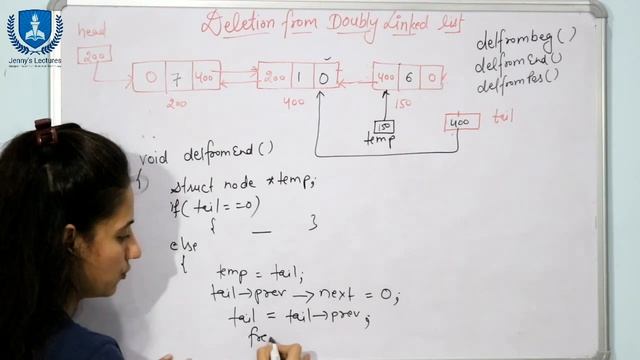 Jenny's Lectures
Deletion from Doubly Linked list
head
200
0 7 400
200 1 0
400 6 0
200
400
150
delfrombeg ( )
delfromEnd ( )
delfromPos ( )
150
temp
400
tail
void delfromEnd ( )
{ struct node *temp;
if( tail == 0)
{ — }
else
{
temp = tail;
tail→prev → next = 0;
tail = tail→prev;
fre